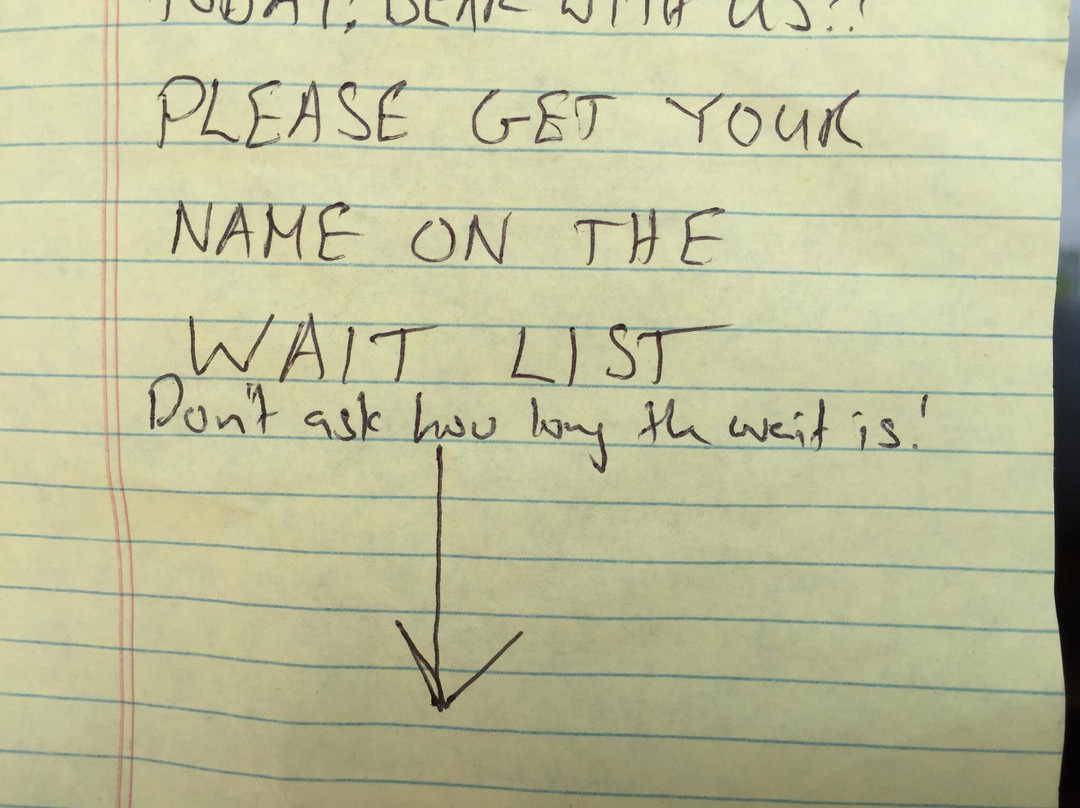 TODAY, BEAR WITH US!!
PLEASE GET YOUR
NAME ON THE
WAIT LIST
Don't ask how long the wait is!